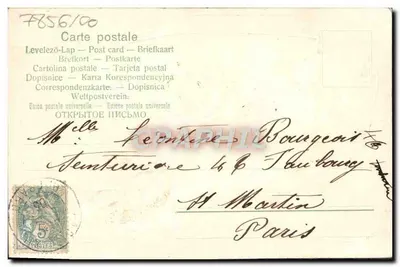 7856/00
Carte postale
Levelező-Lap — Post card — Briefkaart
Brefkort — Postkarte
Cartolina postale — Tarjeta postal
Dopisnice — Karta Korespondencyjna
Correspondenzkarte — Dopisnica
Weltpostverein
Carte postale universelle — Unione postale universale
ОТКРЫТОЕ ПИСЬМО
Mlle Bourgeois
Teinturière 46 Faubourg
St Martin
Paris
5